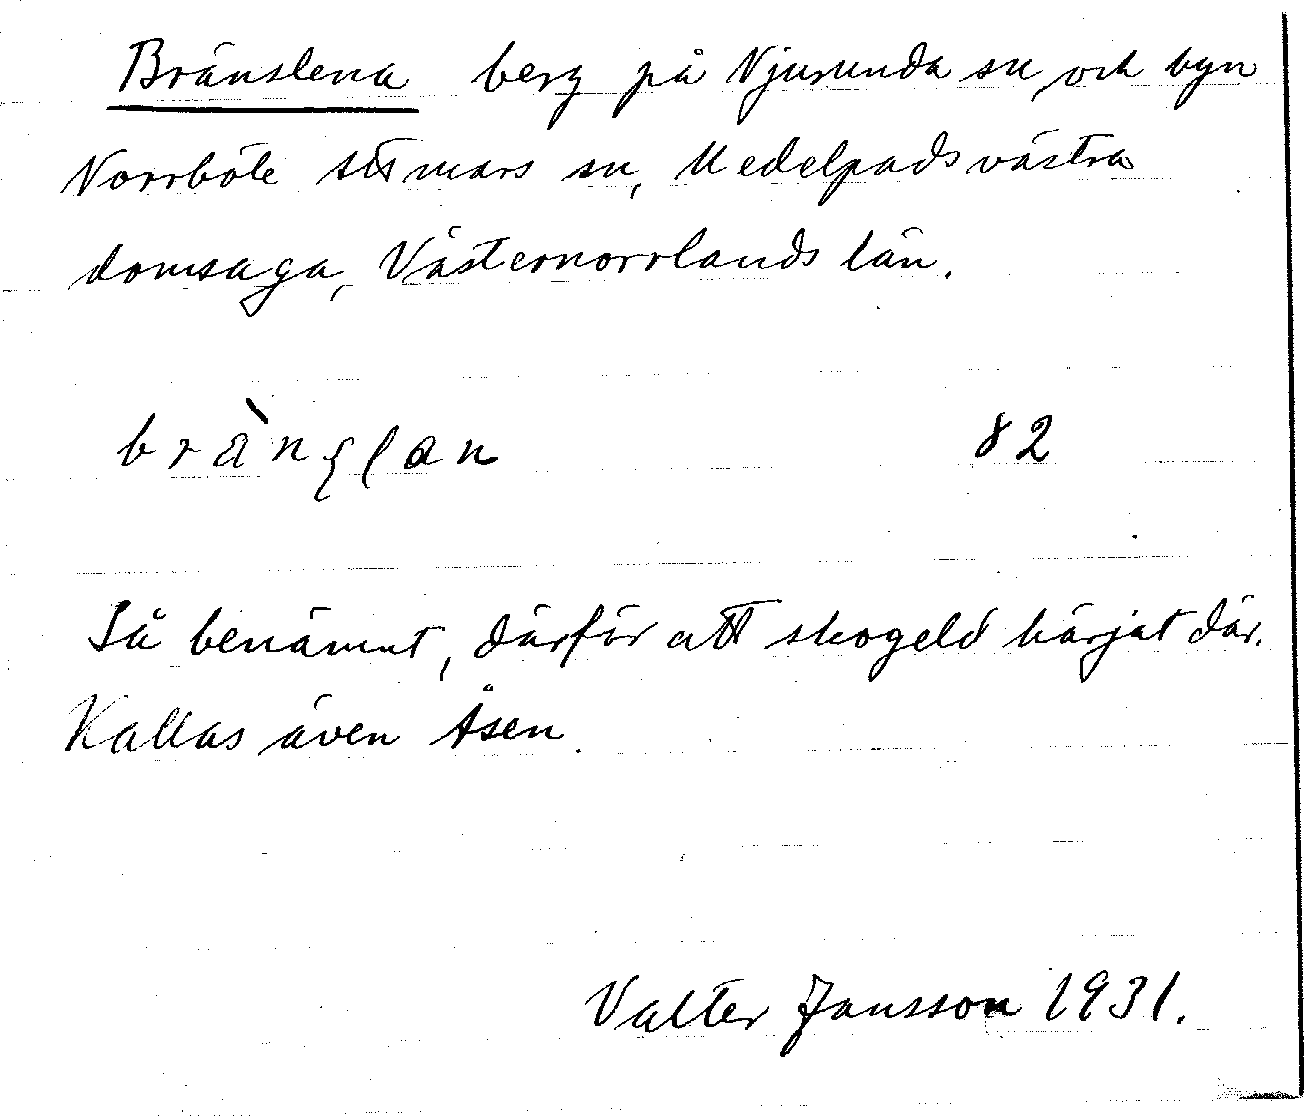 Bränslena berg på Njurunda sn och byn
Norrböle Attmars sn, Medelpads västra
domsaga, Västernorrlands län.
82
Så benämnt, därför att skogeld härjat där.
Kallas även Åsen.
Valter Jansson 1931.